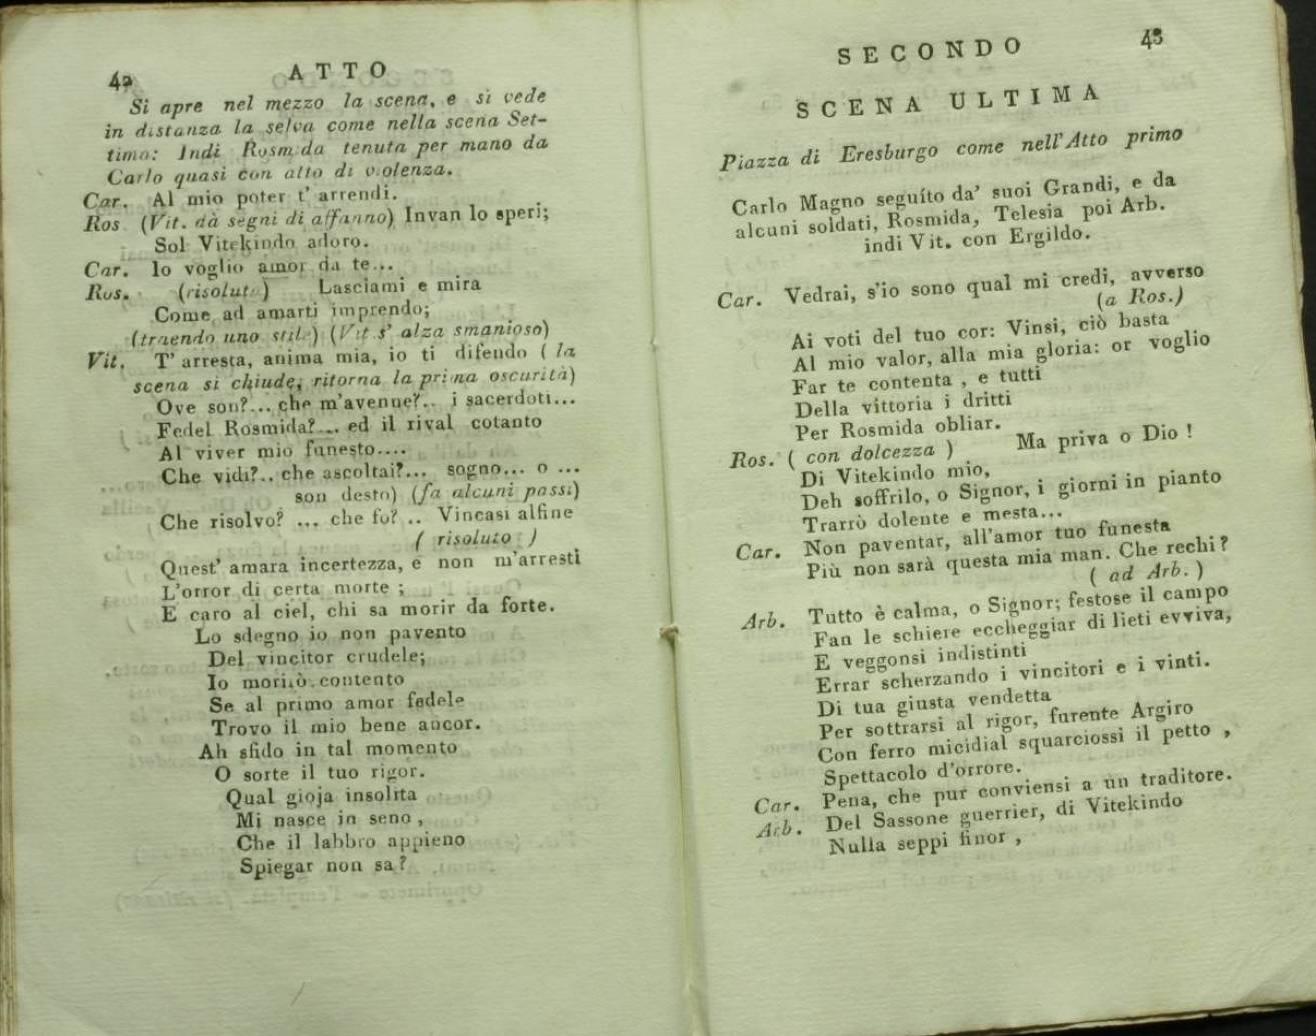 42
ATTO
Si apre nel mezzo la scena, e si vede
in distanza la selva come nella scena Set-
tima: Indi Rosmida tenuta per mano da
Carlo quasi con atto di violenza.
Car. Al mio poter t' arrendi.
Ros (Vit. dà segni di affanno) Invan lo speri;
Sol Vitekindo adoro.
Car. Io voglio amor da te...
Ros. (risoluta) Lasciami e mira
Come ad amarti imprendo;
(traendo uno stile) (Vit s' alza smanioso)
Vit. T' arresta, anima mia, io ti difendo ( la
scena si chiude, ritorna la prima oscurità)
Ove son?... che m'avenne?.. i sacerdoti...
Fedel Rosmida?... ed il rival cotanto
Al viver mio funesto....
Che vidi?.. che ascoltai?... sogno... o ...
son desto) (fa alcuni passi)
Che risolvo? ... che fo? .. Vincasi alfine
( risoluto )
Quest' amara incertezza, e non m'arresti
L'orror di certa morte ;
E caro al ciel, chi sa morir da forte.
Lo sdegno io non pavento
Del vincitor crudele;
Io morirò contento
Se al primo amor fedele
Trovo il mio bene ancor.
Ah sfido in tal momento
O sorte il tuo rigor.
Qual gioja insolita
Mi nasce in seno ,
Che il labbro appieno
Spiegar non sa?
SECONDO
43
SCENA ULTIMA
Piazza di Eresburgo come nell'Atto primo
Carlo Magno seguíto da' suoi Grandi, e da
alcuni soldati, Rosmida, Telesia poi Arb.
indi Vit. con Ergildo.
Car. Vedrai, s'io sono qual mi credi, avverso
(a Ros.)
Ai voti del tuo cor: Vinsi, ciò basta
Al mio valor, alla mia gloria: or voglio
Far te contenta , e tutti
Della vittoria i dritti
Per Rosmida obliar.
Ros. ( con dolcezza ) Ma priva o Dio !
Di Vitekindo mio,
Deh soffrilo, o Signor, i giorni in pianto
Trarrò dolente e mesta...
Car. Non paventar, all'amor tuo funesta
Più non sarà questa mia man. Che rechi?
( ad Arb. )
Arb. Tutto è calma, o Signor; festose il campo
Fan le schiere eccheggiar di lieti evviva,
E veggonsi indistinti
Errar scherzando i vincitori e i vinti.
Di tua giusta vendetta
Per sottrarsi al rigor, furente Argiro
Con ferro micidial squarciossi il petto ,
Spettacolo d'orrore.
Car. Pena, che pur conviensi a un traditore.
Arb. Del Sassone guerrier, di Vitekindo
Nulla seppi finor ,